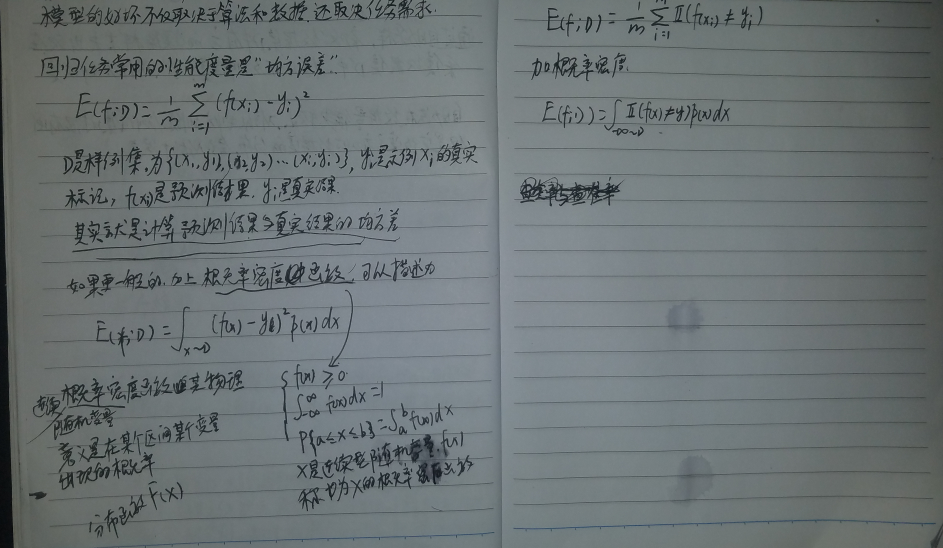 模型的好坏不仅取决于算法和数据,还取决任务需求.
回归任务常用的性能度量是"均方误差"
E(f;D)=1/m ∑_{i=1}^{m} (f(x_i)-y_i)²
D是样例集,为{(x_1,y_1),(y_2,y_2)…(x_i,y_i)}, y_i是示例x_i的真实
标记, f(x_i)是预测结果. y_i是真实结果.
其实就是计算预测结果与真实结果的均方差
如果更一般的,加上概率密度函数,可以描述为
E(f;D)=∫_{x~D} (f(x)-y)² p(x)dx
连续 概率密度函数 其物理
随机变量
意义是在某个区间某个变量
出现的概率
分布函数F(X)
f(x)≥0
∫_{-∞}^{∞} f(x)dx=1
P{a≤x≤b}=∫_a^b f(x)dx
X是连续型随机变量,f(x)
称为X的概率密度函数
E(f;D)=1/m ∑_{i=1}^{m} II(f(x_i)≠y_i)
加概率密度
E(f;D)=∫_{x~D} II(f(x)≠y)p(x)dx